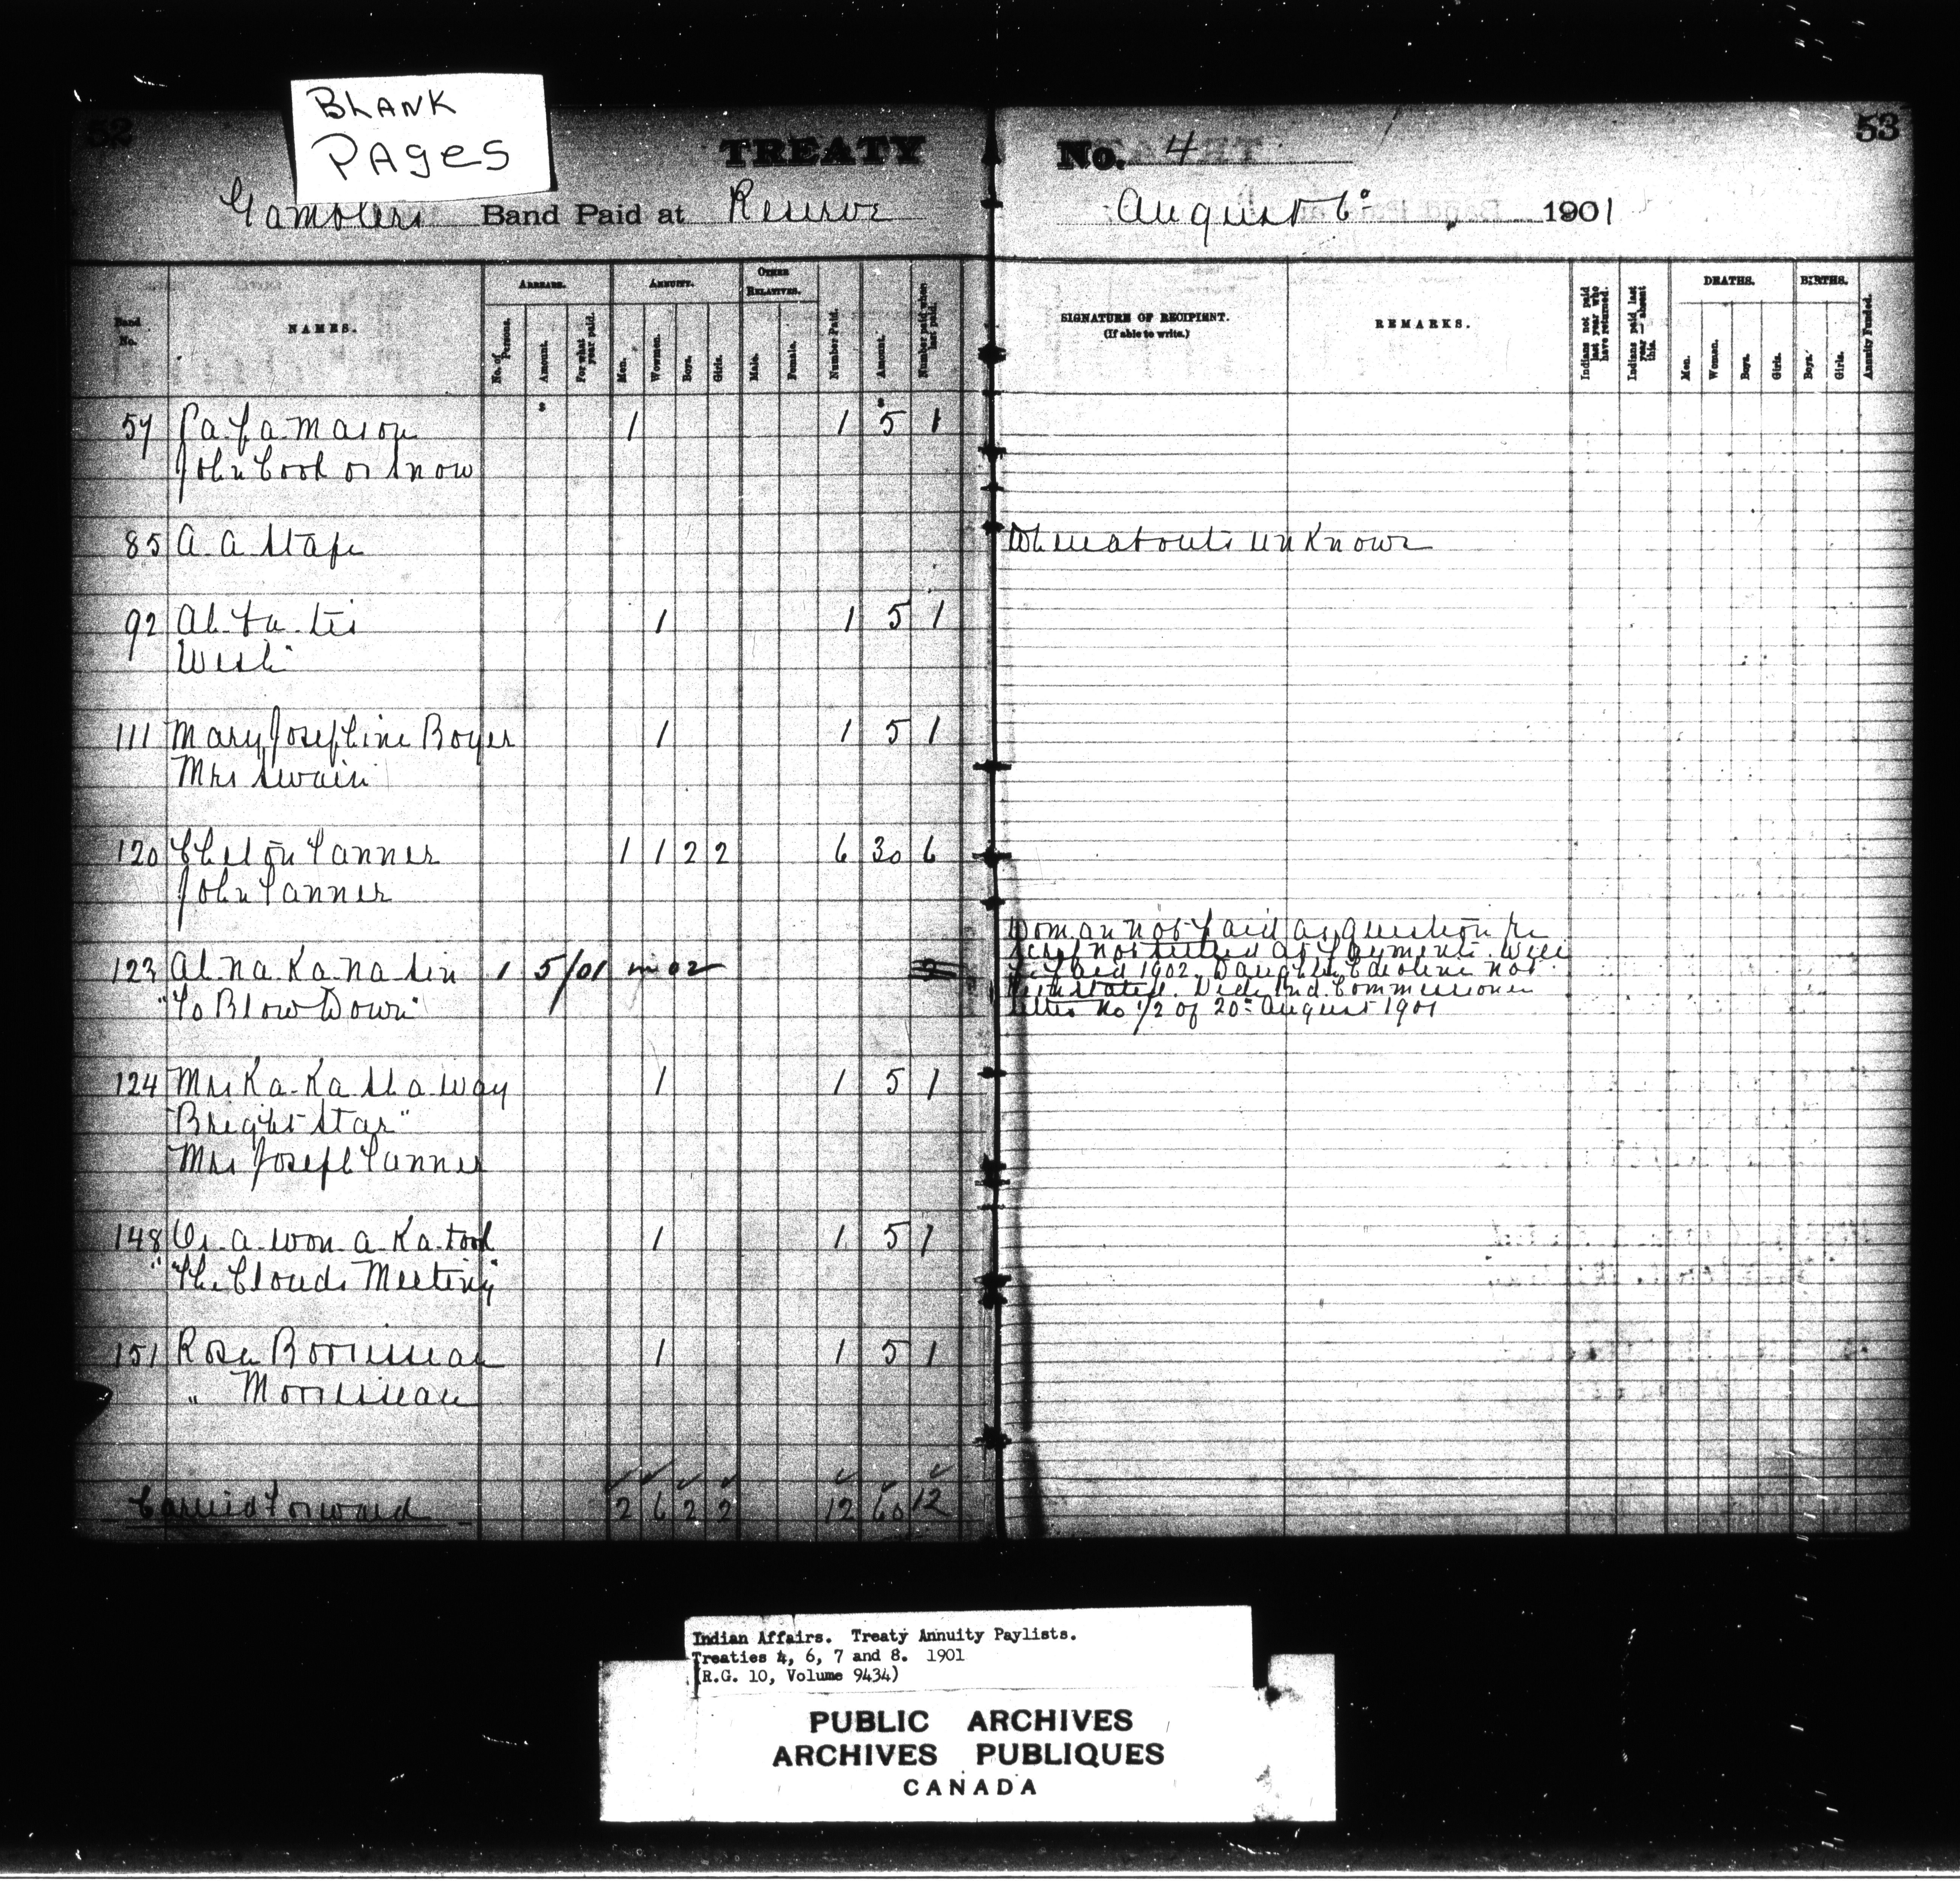 BLANK
PAGES
52
53
TREATY No. 4
Gamblers Band Paid at Reserve August 6º 1901
Band No.
NAMES.
ARREARS.
No. of Persons.
Amount.
For what year paid.
ANNUITY.
Men.
Women.
Boys.
Girls.
OTHER RELATIVES.
Male.
Female.
Number Paid.
Amount.
Number paid when last paid.
SIGNATURE OF RECIPIENT.
(If able to write.)
REMARKS.
Indians not paid last year who have returned.
Indians paid last year — absent this.
DEATHS.
Men.
Women.
Boys.
Girls.
BIRTHS.
Boys.
Girls.
Annuity Funded.
57 Pa. pa. mason 1 1 5 1
John Cook or Snow
85 A. A. Stape Whereabouts unknown
92 1 1 5 1
111 Mary Josephine Boyer 1 1 5 1
Mrs Swain
120 Tanner 1 1 2 2 6 30 6
John Tanner
123 Ah na ka na sin 1 5/01 in 02
"To Blow Down"
Woman not paid as question re
scrip not settled as payments. Will
be paid 1902. Daughter Caroline not
reinstated. Vide Ind. Commissioner
letter No 1/2 of 20th August 1901
124 Mrs Ka-Ka sha way 1 1 5 1
"Bright Star"
Mrs Joseph Tanner
148 Os. a. won. a. ka. took 1 1 5 1
"The Clouds Meeting"
151 Rose Borrisseau 1 1 5 1
" Morrisseau
Carried Forward 2 6 2 2 12 60 12
Indian Affairs. Treaty Annuity Paylists.
Treaties 4, 6, 7 and 8. 1901
(R.G. 10, Volume 9434)
PUBLIC ARCHIVES
ARCHIVES PUBLIQUES
CANADA